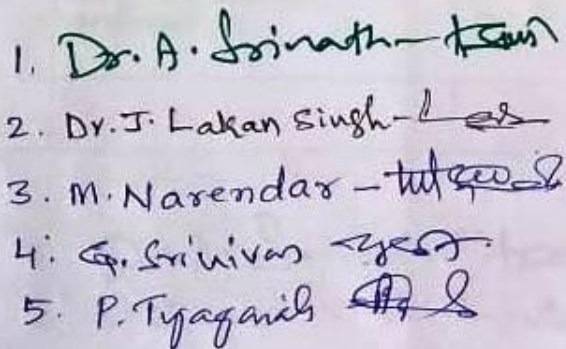 1. Dr. A. Srinath -
2. Dr. J. Lakan Singh -
3. M. Narendar -
4. G. Srinivas
5. P. Tyagaraju